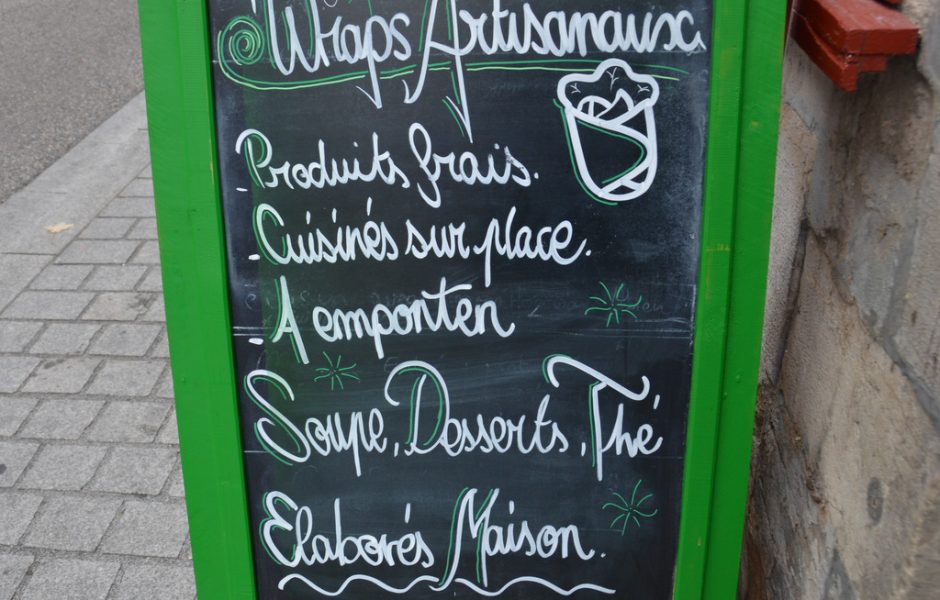 Wraps Artisanaux
- Produits frais.
- Cuisinés sur place.
- A emporter
Soupe, Desserts, Thé
Elaborés Maison.